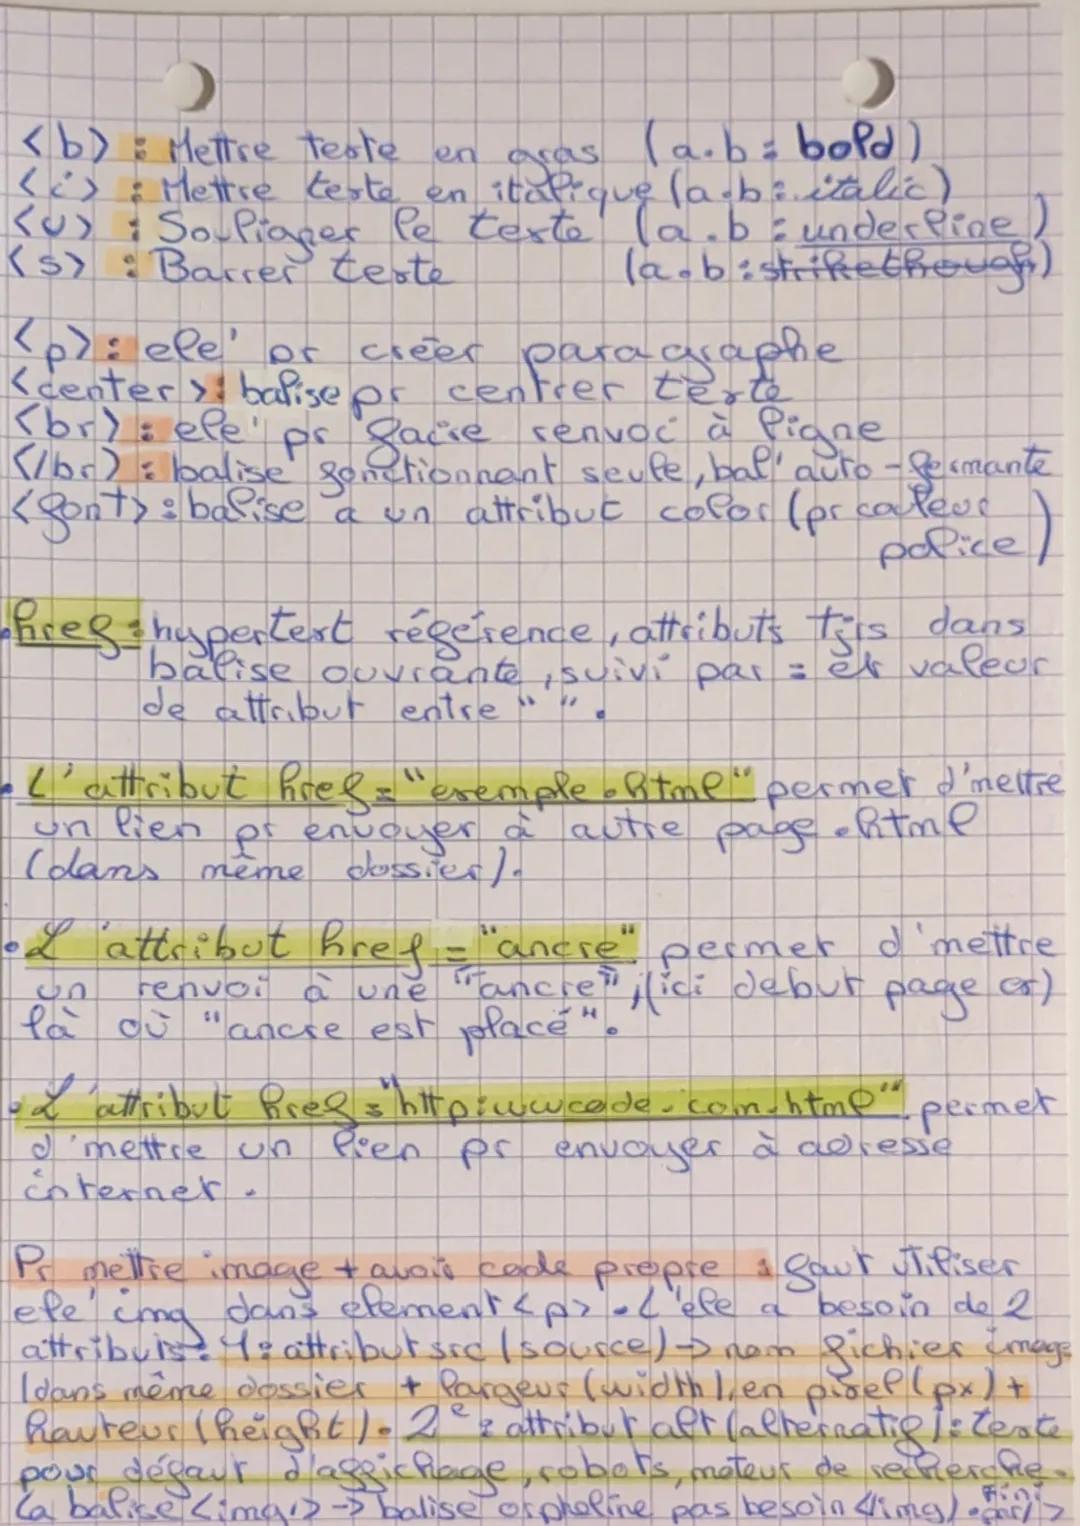 <b> : Mettre texte en gras (a.b : bold)
<i> : Mettre texte en italique (a.b : italic)
<u> : Souligner le texte (a.b : underline)
<s> : Barrer texte (a.b : strikethrough)
<p> : ele' pr créer paragraphe
<center> : balise pr centrer texte
<br> : ele' pr faire renvoi à ligne
</br> : balise fonctionnant seule, bal' auto-fermante
<font> : balise a un attribut color (pr couleur
police)
href : hypertext référence, attributs tjrs dans
balise ouvrante, suivi par = et valeur
de attribut entre " ".
• L'attribut href = "exemple.html" permet d'mettre
un lien pr envoyer à autre page.html
(dans même dossier).
• L'attribut href = "ancre" permet d'mettre
un renvoi à une "ancre", (ici debut page)
là où "ancre est placé".
• L'attribut href = "http:wwcode.com.html" permet
d'mettre un lien pr envoyer à adresse
internet.
Pr mettre image + avoir code propre : faut utiliser
ele' img dans element <p>. L'ele a besoin de 2
attributs : 1 : attribut src (source) → nom fichier image
(dans même dossier + largeur (width), en pixel (px) +
hauteur (height). 2e : attribut alt (alternatif) : texte
pour défaut d'affichage, robots, moteur de recherche.
La balise <img/> → balise orpheline pas besoin </img>. Fini
par />